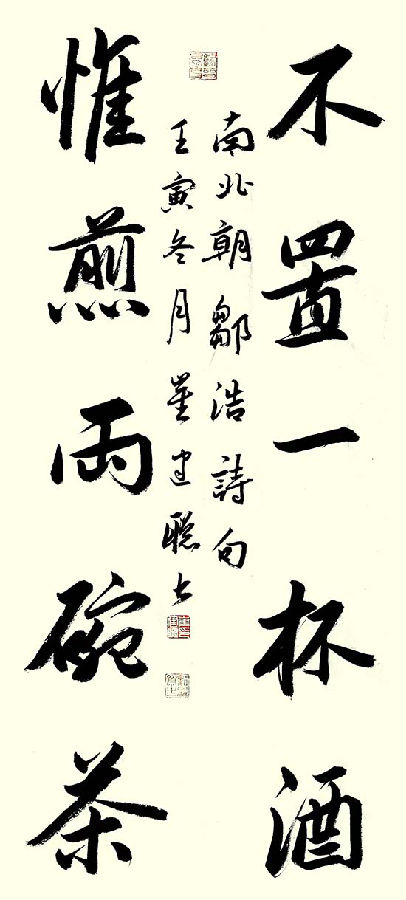 不置一杯酒
惟煎兩碗茶
南北朝鄒浩詩句
壬寅冬月崔建聰書